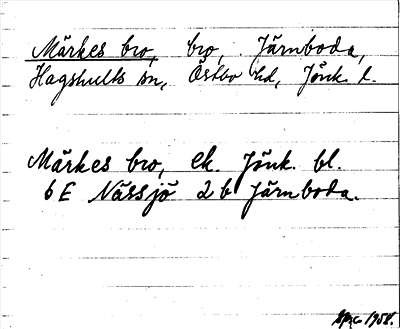 Märkes bro, bro, Järnboda,
Hagshults sn, Östbo hd, Jönk. l.
Märkes bro, ek. Jönk. bl.
6 E Nässjö 2 b Järnboda.
1958.